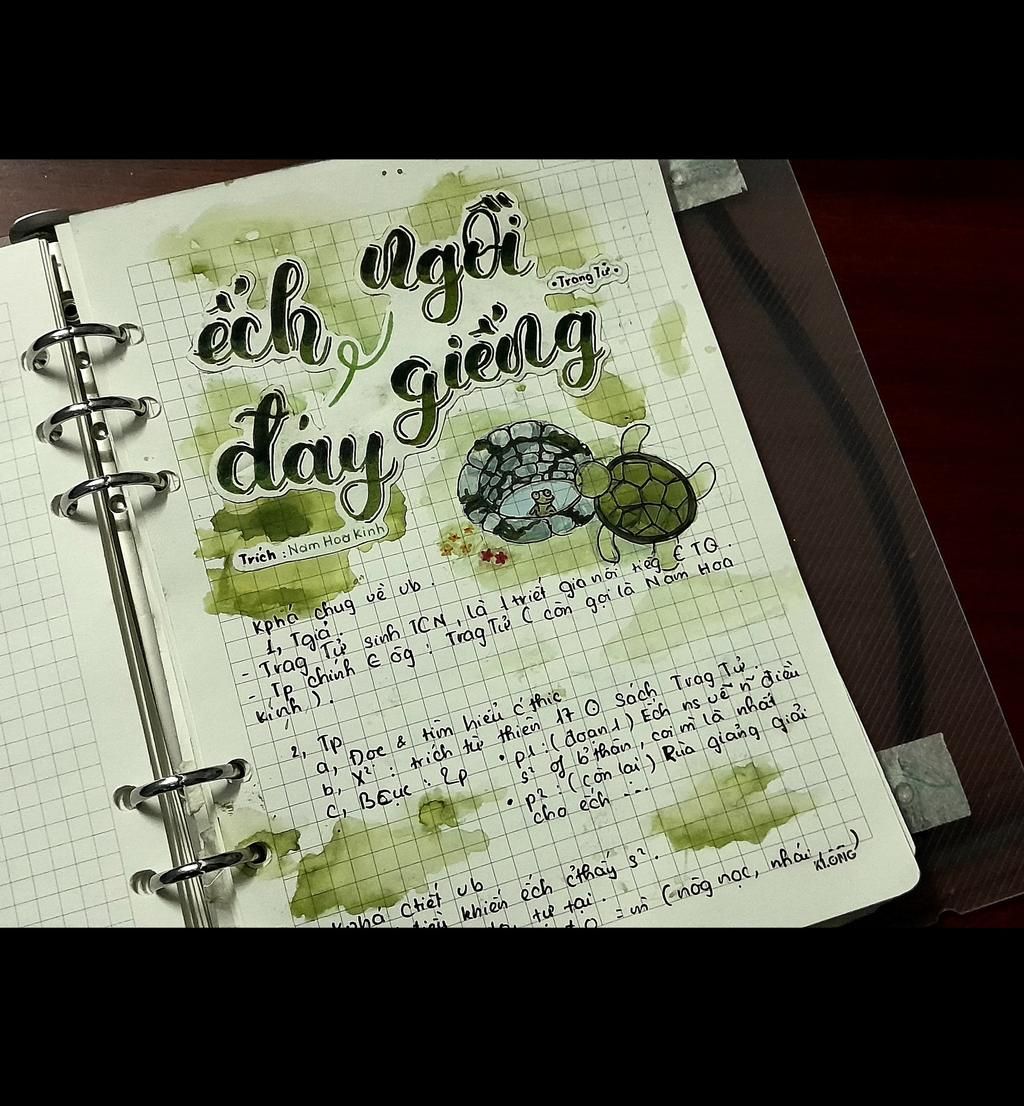 ếch ngồi
đáy giếng
•Trang Tử•
Trích : Nam Hoa Kinh
Kphá chug về vb.
1, Tgiả.
- Trag Tử sinh TCN, là 1 triết gia nổi tiếg Є TQ.
- Tp chính Є ôg : Trag Tử ( còn gọi là Nam Hoa
kinh ).
2, Tp
a, Đọc & tìm hiểu c'thíc
b, X² : trích từ thiên 17 O sách Trag Tử.
c, BCục : 2p
• p1 : (đoạn 1) Ếch ns về ~n điều
s² of b'thân, coi m` là nhất
• p2 : (còn lại) Rùa giảng giải
cho ếch ...
Kphá ctiết vb
khiến ếch c'thấy s².
tự tại.
(nòg nọc, nhái, )
KHÔNG